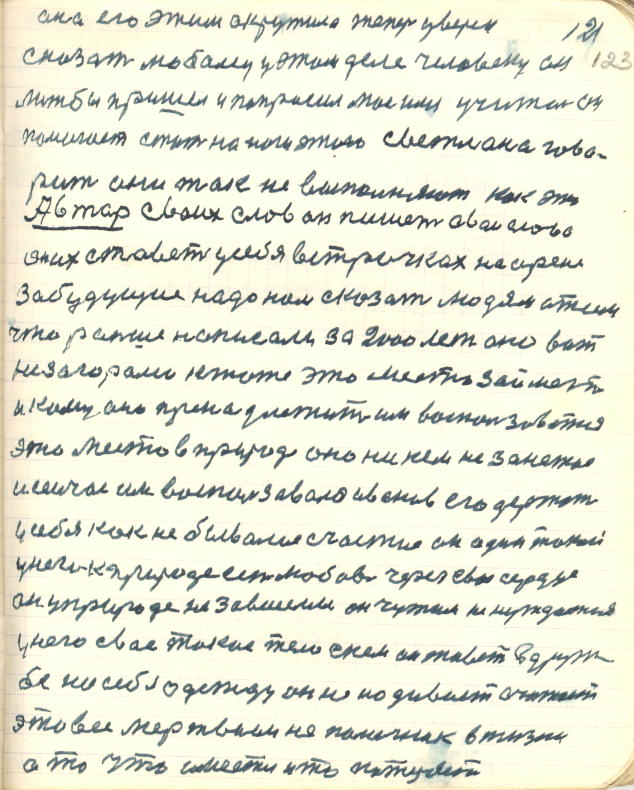 она его этим окружила тепер уверен
121
сказат любому у этом деле человеку он
123
лижбы пришел и попросил мое имя учител он
помогает стат на ноги этого Светлана гово-
рит они так не выполняют как это
Автар своих слов он пишет свои слова
они их ставет у себя в строчках на арене
За будущие надо нам сказат людям о тем
что раньше написали за 2000 лет оно вот
не за горами кто же это место займет
и кому оно принадлежит им воспользоватся
это место в природе оно ни кем не занетое
и сейчас им воспользовался Иванов его держит
у себя как не бывалое счастие он один такой
у него к природе ест любов через свое сердце
он у природе не зависимы он чужим не нуждается
у него свое такое тело с кем он живет в друж-
бе на себя одежду он не надивает считает
это все мертвым не помочник в жизни
а то что имеет и то потеряет